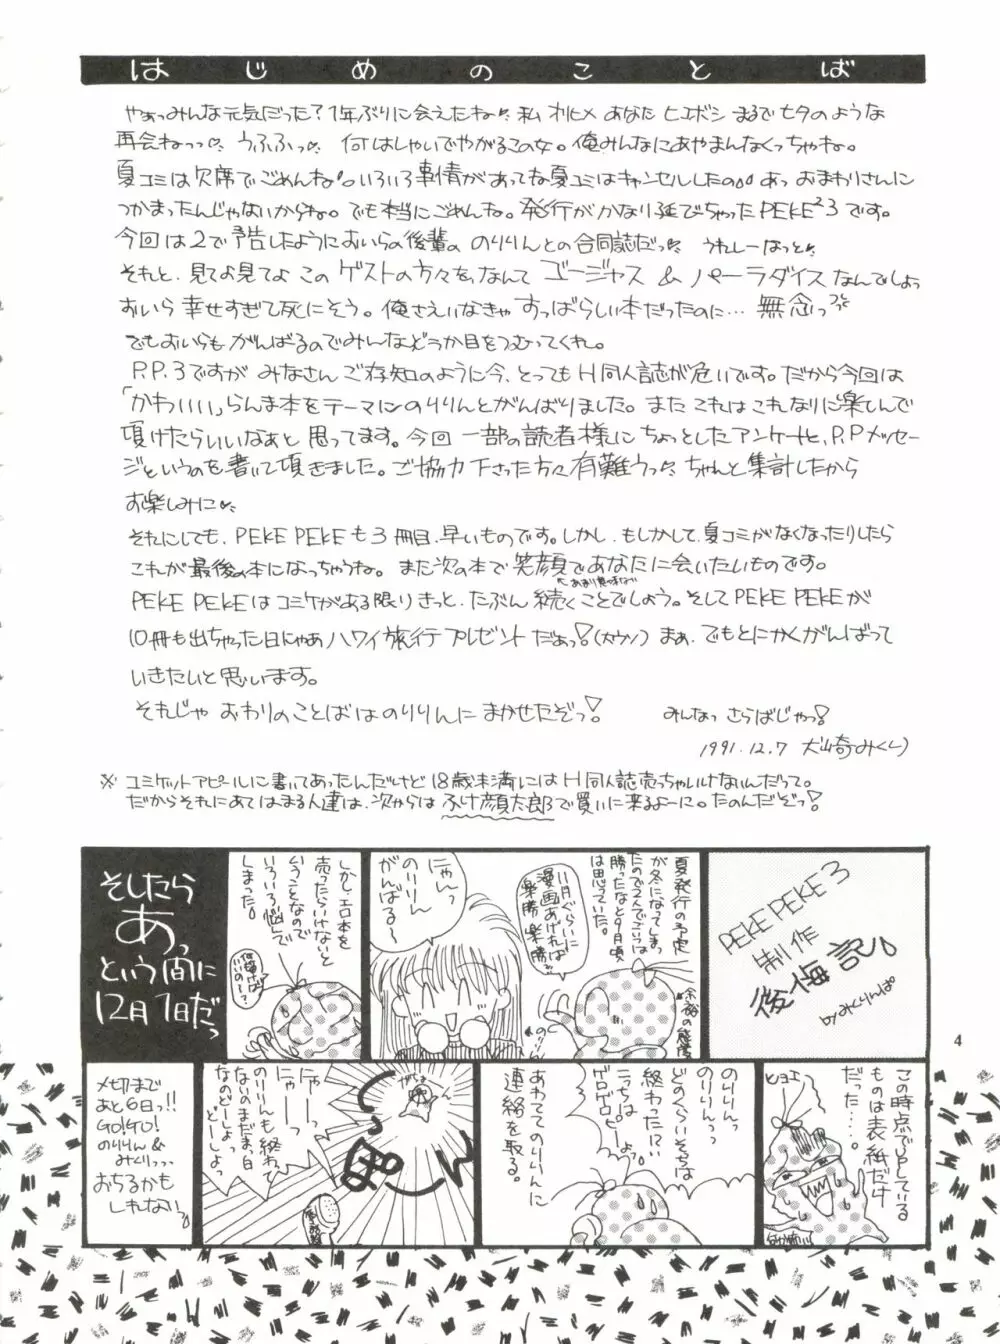 はじめのことば
やあっみんな元気だった？1年ぶりに会えたね 私 オリヒメ あなた ヒコボシ まるで七夕のような
再会ねっっ うふふっ 何はしゃいでやがるこの女。俺みんなにあやまんなくっちゃね。
夏コミは欠席でごめんね。いろいろ事情があってな夏コミはキャンセルしたの あっ おまわりさんに
つかまったんじゃないからね。でも本当にごめんね。発行がかなり延びちゃったPEKE²3です。
今回は2で予告したようにおいらの後輩の のりりんとの合同誌だっ うれしーなっと
それと、見てよ見てよ このゲストの方々を、なんて ゴージャス & パーラダイス なんでしょっ
おいら 幸せすぎて死にそう。俺さえいなきゃ すっばらしい本だったのに… 無念っ
でもおいらも がんばるのでみんなどうか目をつむってくれ。
P.P.3ですが みなさん ご存知のように今、とってもH同人誌が危いです。だから今回は
「かわいい」らんま本をテーマにのりりんとがんばりました。また これは これなりに楽しんで
頂けたらいいなあと 思ってます。今回 一部の読者様に ちょっとしたアンケートと、P.Pメッセー
ジというのを 書いて頂きました。ご協力下さった方々 有難うっ ちゃんと集計したから
お楽しみに
それにしても、PEKE PEKEも3冊目、早いものです。しかし、もしかして、夏コミがなくなったりしたら
これが最後の本になっちゃうね。また次の本で 笑顔であなたに会いたいものです。
あまり意味ない
PEKE PEKEは コミケがある限り きっと、たぶん 続くことでしょう。そしてPEKE PEKEが
10冊も出ちゃった日にゃあ ハワイ旅行プレゼント だぁっ!(大ウソ) まぁ、でもとにかくがんばって
いきたいと思います。
それじゃ おわりのことばは のりりんに まかせたぞっ! みんなっ さらばじゃっ!
1991.12.7 犬崎みくり
※ コミケットアピールに書いてあったんだけど 18歳未満には H同人誌売っちゃいけないんだって。
だからそれにあてはまる人達は、次からは ふけ顔太郎で買いに来るよーに。たのんだぞっ!
PEKE PEKE 3
制作
後悔記
by みくりんぱ
夏発行の予定
が冬になってしまっ
勝ったなと9月頃
は思っていた。
11月ぐらいに
漫画あげれば
楽勝楽勝
余裕の態度
にゃんっ
のりりん
がんばる〜
のりりん
しかし、エロ本を
売ったらいけないと
いうことなので
いろいろ悩んで
しまった。
何描けば
いいのー?
そしたら
あっ
という間に
12月1日だっ
この時点でUPしている
ものは表紙だけ
だった……。
ヒョエ
のりりんっ
のりりんっ
どのぐらいそちらは
終わったにい
こっちは
ゲロゲロピーよっ
あわててのりりんに
連絡を取る。
にゃーっ
にゃーっ
のりりんも終わって
ないのまだまっ白
なのどーしよっ
どーしよっ
〆切まで
あと6日っ!!
GO!GO!
のりりん&
みくりっっっ
おちるかも
しれない
4